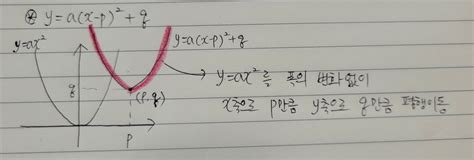 ⊛ y=a(x-p)²+q
y=ax²
y=a(x-p)²+q
q
(p.q)
p
y=ax²을 폭의 변화없이
x축으로 p만큼 y축으로 q만큼 평행이동